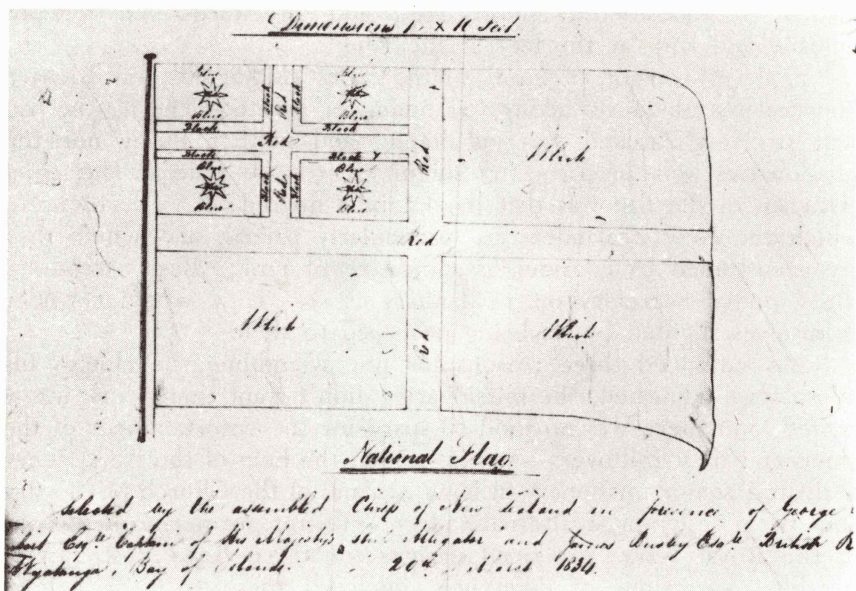 Dimensions × 11 Feet
Blue Black Red Black Blue
Blue Blue
Black Black
Red
Black Black
Blue Blue
Black Red Black
Blue Blue
Red
White
Red
White Red White
National Flag
Selected by the assembled Chiefs of New Zealand in presence of George
Esqre Captain of His Majesty's Alligator and James Busby Esqre British R
Bay of Islands. 20th March 1834.